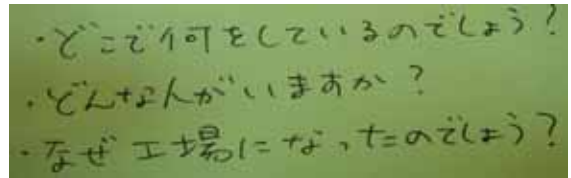 ・どこで何をしているのでしょう?
・どんな人がいますか?
・なぜ工場になったのでしょう?